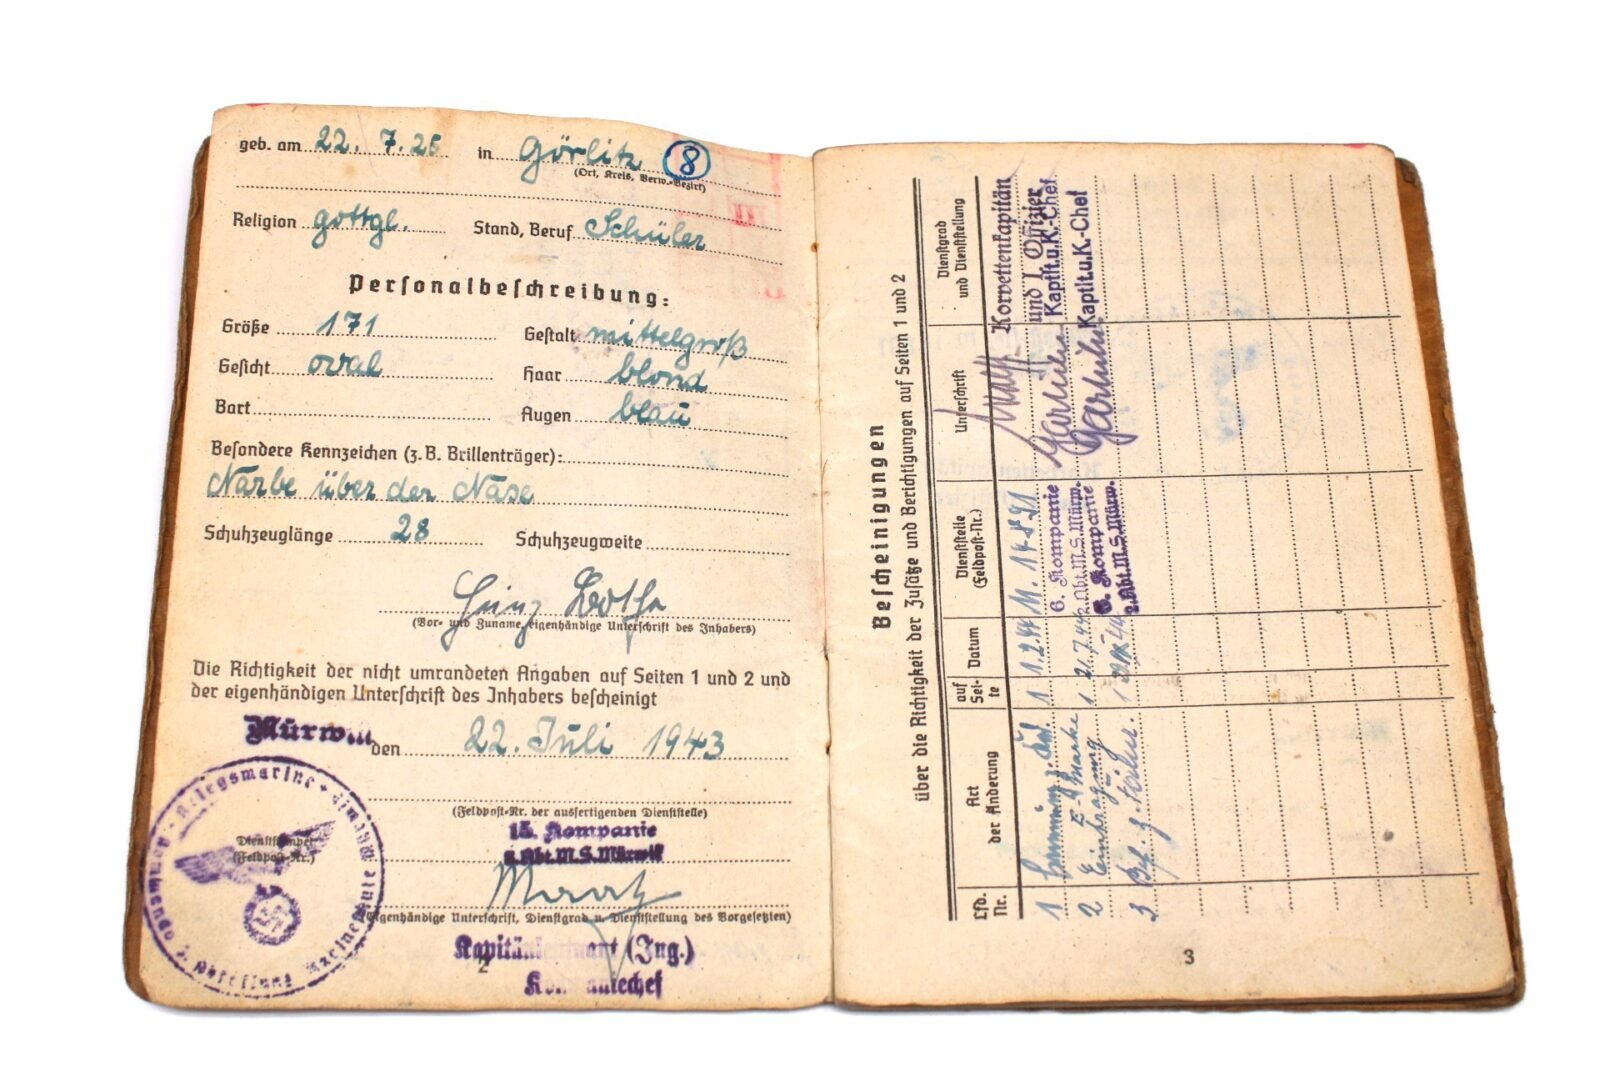 geb. am 22. 7. 25 in Görlitz 8
(Ort, Kreis, Verw.-Bezirk)
Religion gottgl. Stand, Beruf Schüler
Personalbeschreibung:
Größe 171 Gestalt mittelgroß
Gesicht oval Haar blond
Bart Augen blau
Besondere Kennzeichen (z. B. Brillenträger):
Narbe über der Nase
Schuhzeuglänge 28 Schuhzeugweite
(Vor- und Zuname, eigenhändige Unterschrift des Inhabers)
Die Richtigkeit der nicht umrandeten Angaben auf Seiten 1 und 2 und
der eigenhändigen Unterschrift des Inhabers bescheinigt
Mürwik den 22. Juli 1943
(Feldpost-Nr. der ausfertigenden Dienststelle)
15. Kompanie
Abt. M. S. Mürwik
Dienststempel
(Feldpost-Nr.)
(Eigenhändige Unterschrift, Dienstgrad u. Dienststellung des Vorgesetzten)
Kapitänleutnant (Ing.)
Kompaniechef
2
Bescheinigungen
über die Richtigkeit der Zusätze und Berichtigungen auf Seiten 1 und 2
Lfd. Nr.
Art der Änderung
auf Sei- te
Datum
Dienststelle (Feldpost-Nr.)
Unterschrift
Dienstgrad und Dienststellung
1 1 1.2.44
Korvettenkapitän
und I. Offizier
2 E-Marke
Eintragung 1 21.7.44
6. Kompanie
2. Abt. M. S. Mürw.
Kaptlt. u. K.-Chef
3 1
6. Kompanie
2. Abt. M. S. Mürw.
Kaptlt. u. K.-Chef
3